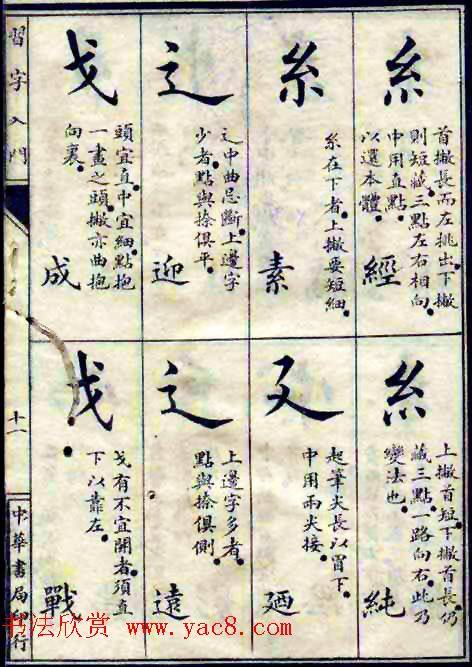 糹
首撇長而左挑出下撇
則短藏三點左右相向
中用直點
以還本體
經
糸
糸在下者上撇要短細
素
辶
辶中曲忌斷上邊字
少者點與捺俱平
迎
戈
頭宜直中宜細點抱
一畫之頭撇亦曲抱
向裏
成
糹
上撇首短下撇首長仍
藏三點一路向右此乃
變法也
純
廴
起筆尖長以冒下
中用兩尖接
廼
辶
上邊字多者
點與捺俱側
遠
戈
戈有不宜開者須直
下以靠左
戰
習字入門
十一
中華書局印行
书法欣赏 www.yac8.com